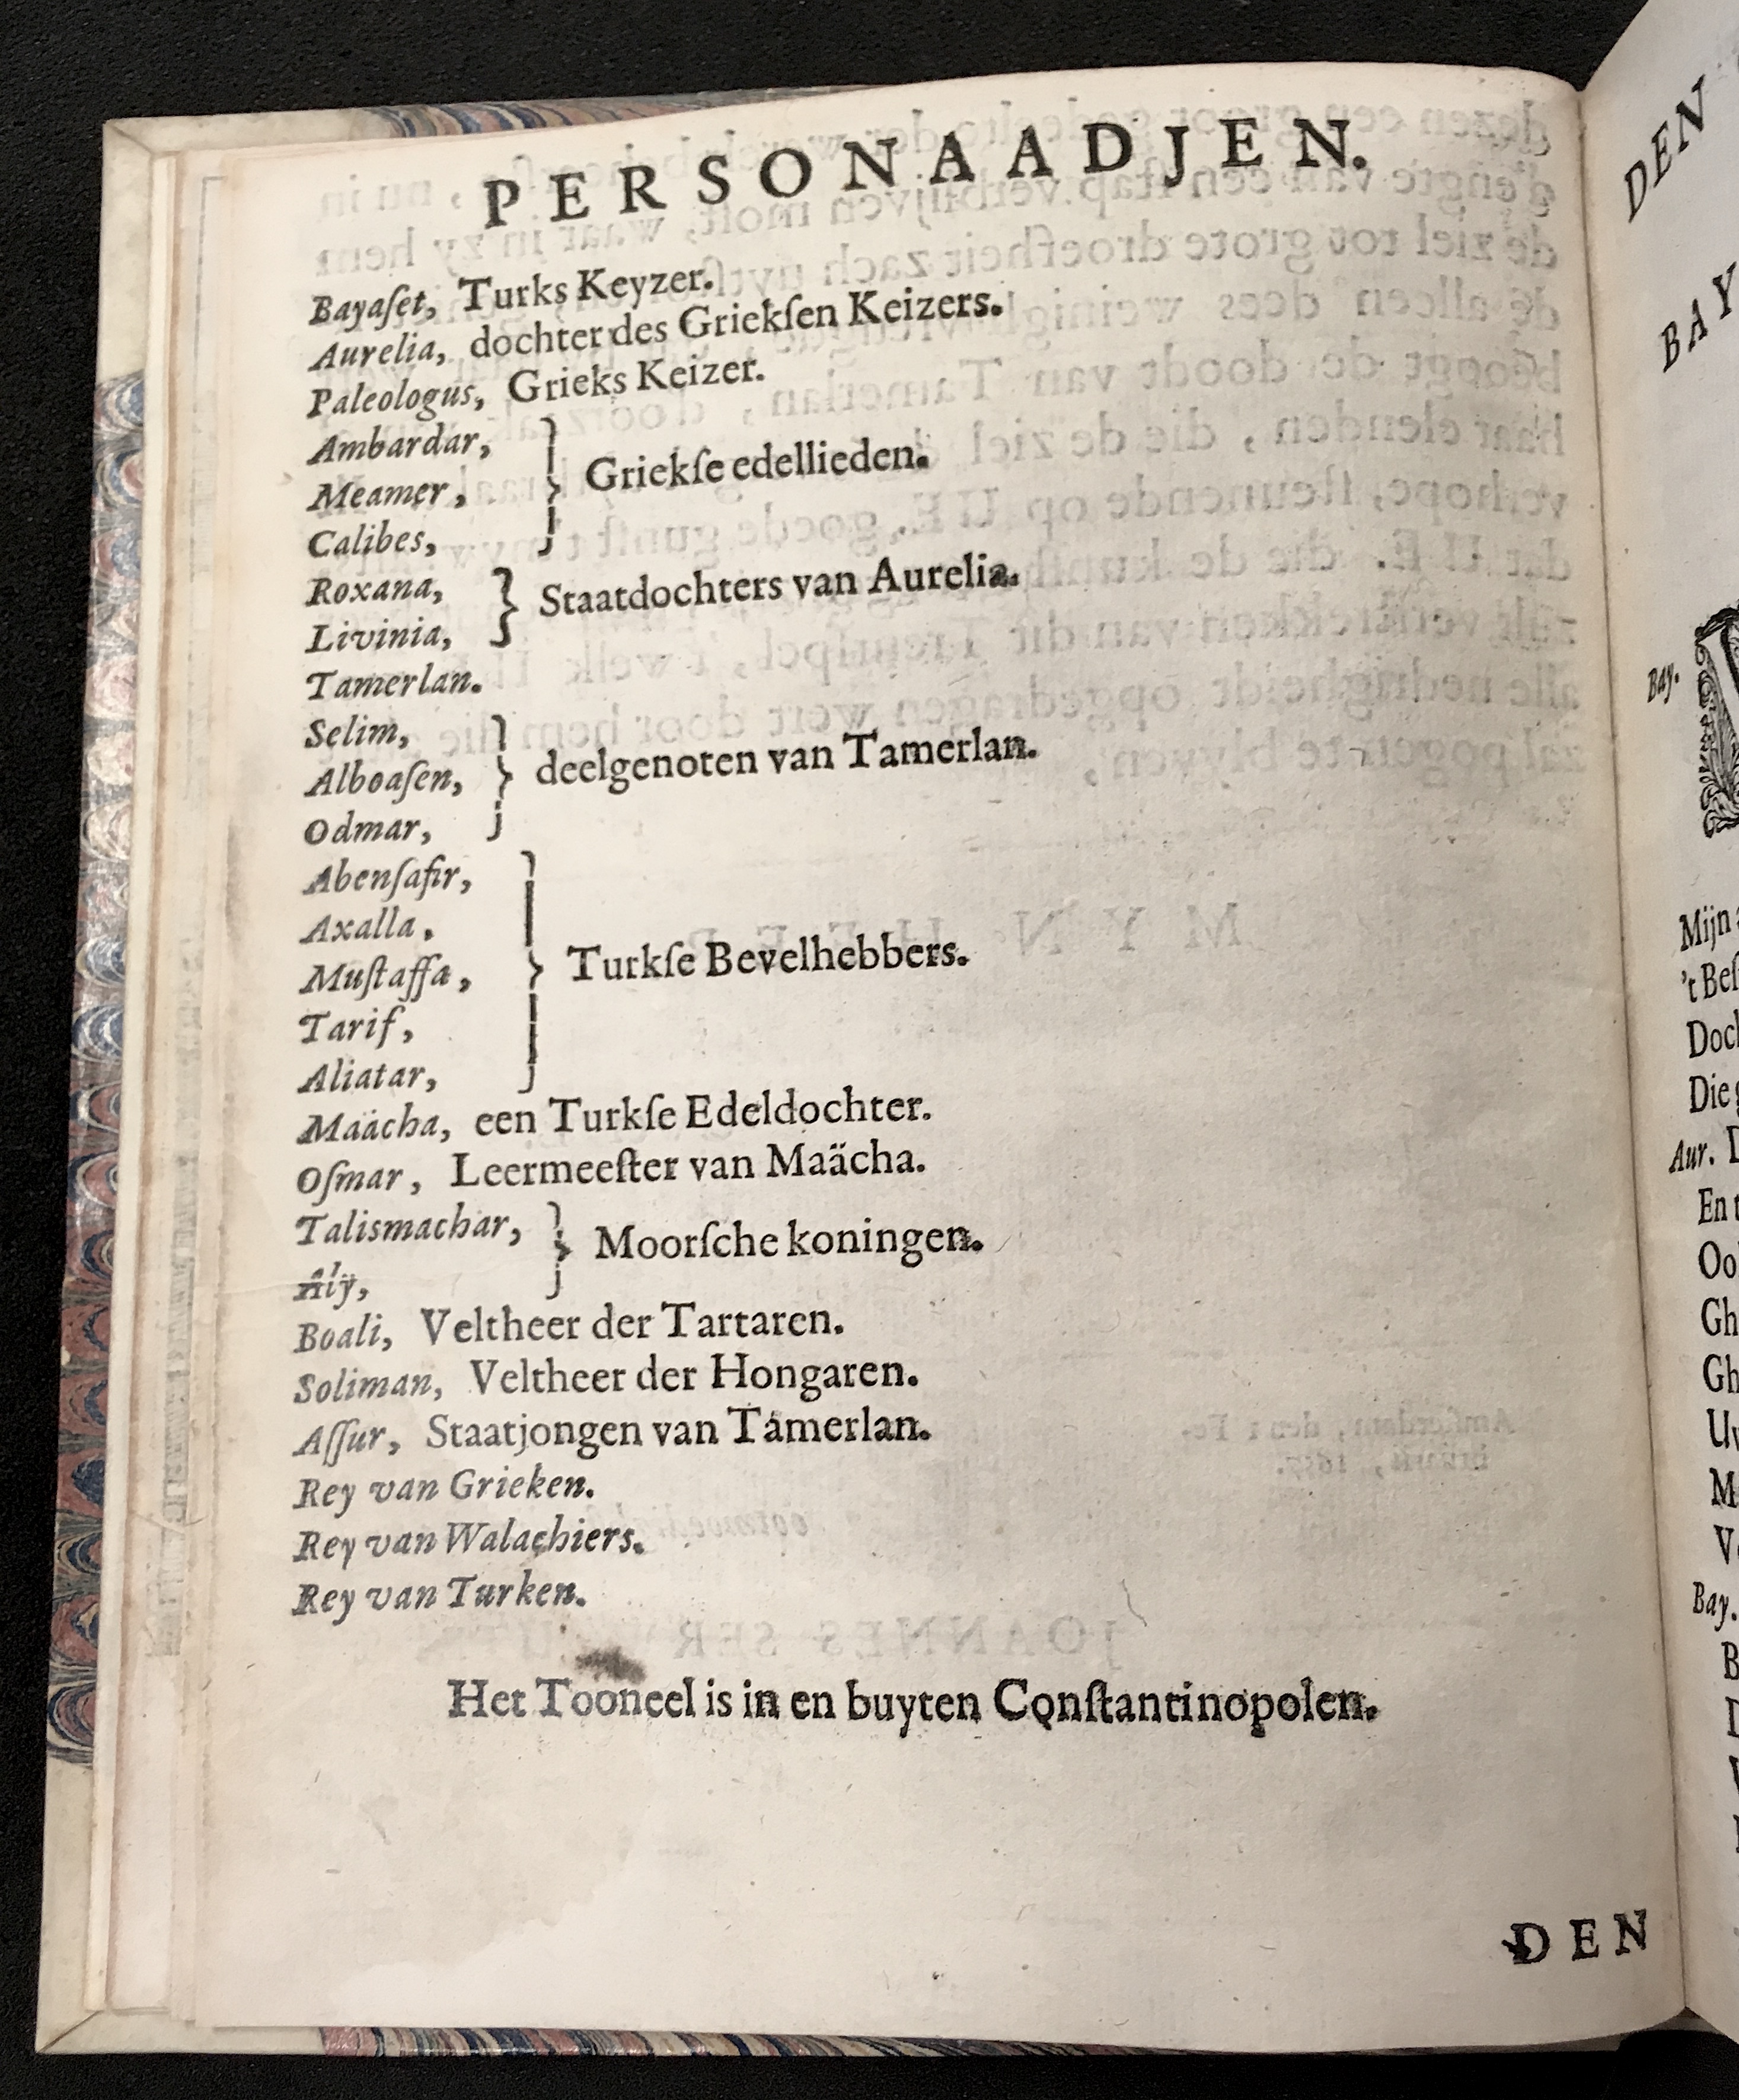 PERSONAADJEN.
Bayaſet, Turks Keyzer.
Aurelia, dochter des Griekſen Keizers.
Paleologus, Grieks Keizer.
Ambardar,
Meamer, } Griekſe edellieden.
Calibes,
Roxana, } Staatdochters van Aurelia.
Livinia,
Tamerlan.
Selim,
Alboaſen, } deelgenoten van Tamerlan.
Odmar,
Abenſafir,
Axalla,
Muſtaffa, } Turkſe Bevelhebbers.
Tarif,
Aliatar,
Maächa, een Turkſe Edeldochter.
Oſmar, Leermeeſter van Maächa.
Talismachar, } Moorſche koningen.
Alÿ,
Boali, Veltheer der Tartaren.
Soliman, Veltheer der Hongaren.
Aſſur, Staatjongen van Tamerlan.
Rey van Grieken.
Rey van Walachiers.
Rey van Turken.
Het Tooneel is in en buyten Conſtantinopolen.
DEN
DEN
BAY
Bay.
Mijn
't Beſ
Doch
Die
Aur.
En
Oo
Gh
Gh
Bay.